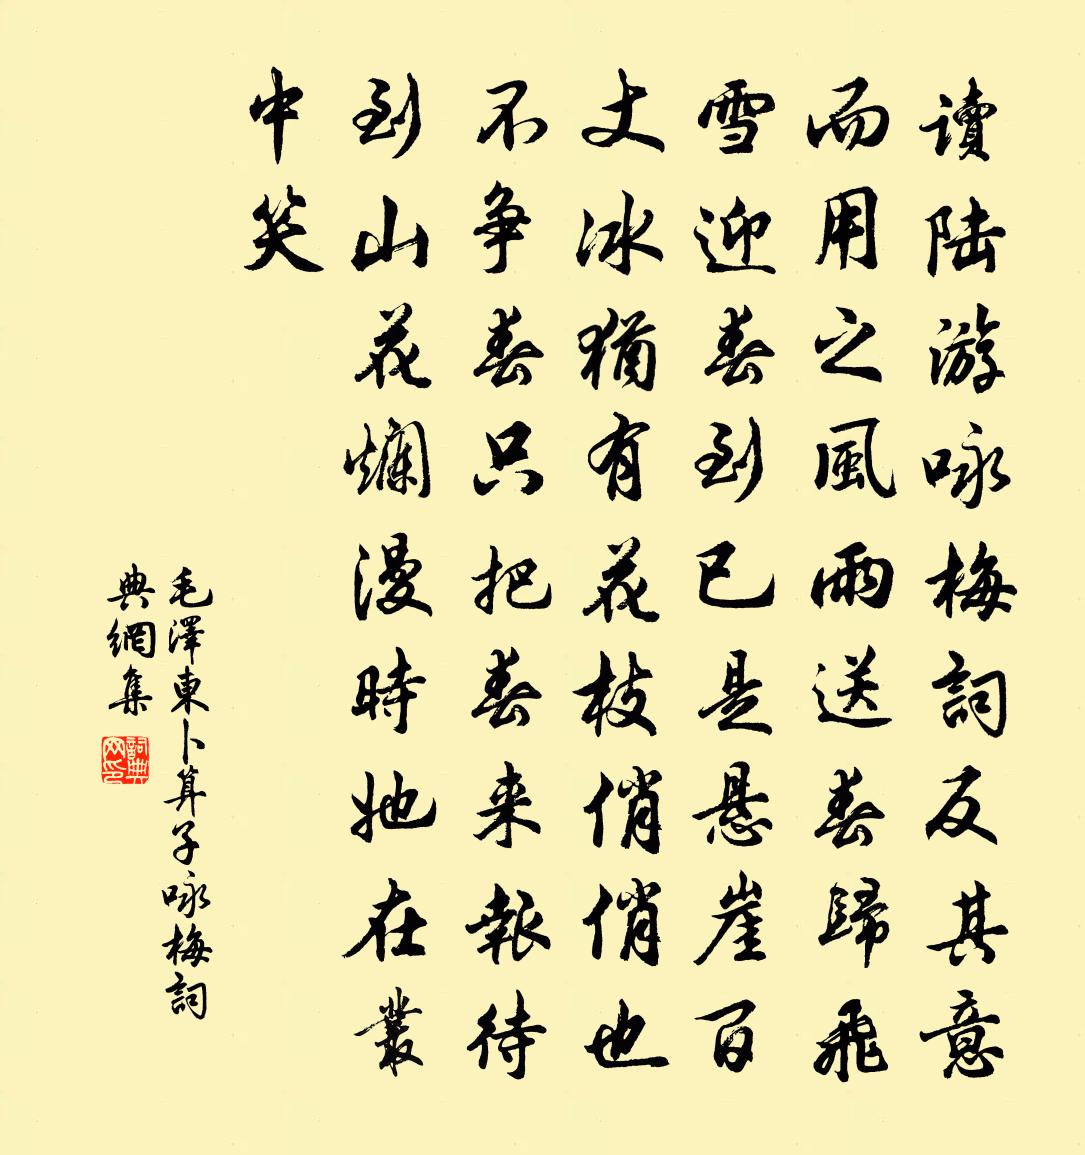 讀陆游咏梅詞反其意
而用之風雨送春歸飛
雪迎春到已是悬崖百
丈冰猶有花枝俏俏也
不争春只把春来報待
到山花爛漫時她在叢
中笑
毛澤東卜算子咏梅詞
典網集
詞典网印